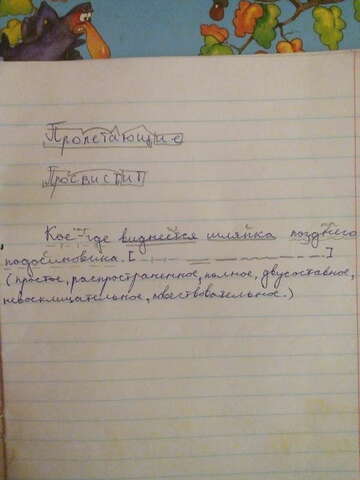 Пролетающие
Просвистит
Кое-где виднеется шляпка позднего
подосиновика. [
]
(простое, распространенное, полное, двусоставное,
невосклицательное, повествовательное.)